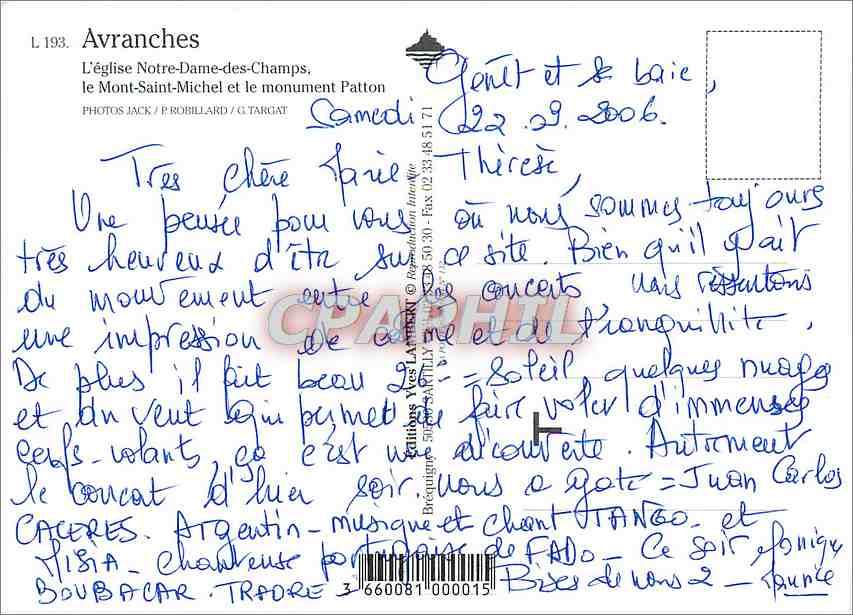 L 193. Avranches
L'église Notre-Dame-des-Champs,
le Mont-Saint-Michel et le monument Patton
PHOTOS JACK / P. ROBILLARD / G. TARGAT
Genêt et sa baie,
Samedi 22.09.2006.
Très chère Marie Thérèse,
Une pensée pour vous où nous sommes toujours
très heureux d'être sur ce site. Bien qu'il y ait
du mouvement entre les concerts nous ressentons
une impression de calme et de tranquillité.
De plus il fait beau = soleil, quelques nuages
et un vent qui permet de faire voler d'immenses
cerfs-volants, ça c'est une découverte. Autrement
le concert d'hier soir nous a gaté = Juan Carlos
CACERES. Argentin - musique et chant TANGO - et
MISIA - chanteuse portugaise de FADO - Ce soir
BOUBACAR - TRAORE
Bises de nous 2 -
Editions Yves LAMBERT © Reproduction Interdite
Bréquigny - 50530 SARTILLY - 50 30 - Fax 02 33 48 51 71
CPARHIL
3 660081 000015